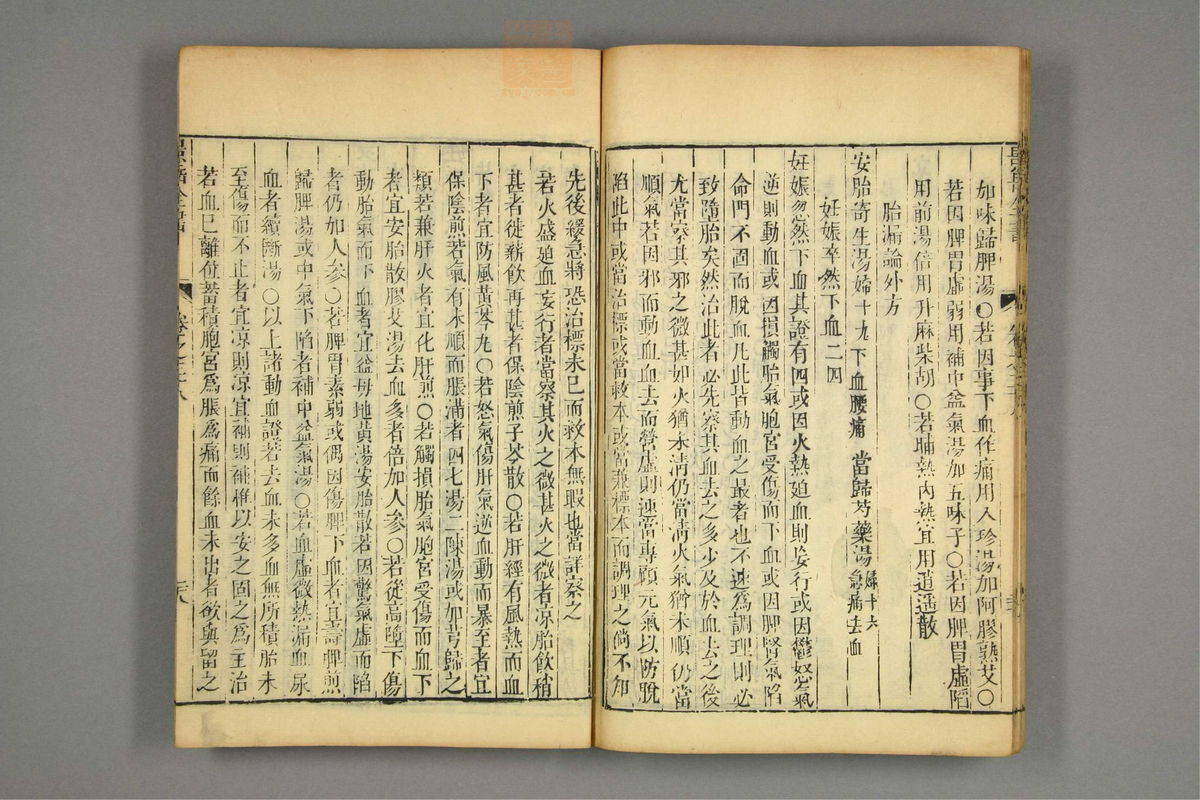 加味歸脾湯○若因事下血作痛用八珍湯加阿膠熟艾○
若因脾胃虛弱用補中益氣湯加五味子○若因脾胃虛陷
用前湯倍用升麻柴胡○若晡熱內熱宜用逍遥散
胎漏論外方
安胎寄生湯婦十九下血腰痛 當歸芍藥湯婦十六急痛去血
妊娠卒然下血二四
妊娠忽然下血其證有四或因火熱廹血則妄行或因鬱怒氣
逆則動血或因損觸胎氣胞宮受傷而下血或因脾腎氣陷
命門不固而脫血凡此皆動血之最者也不速為調理則必
致墮胎矣然治此者必先察其血去之多少及於血去之後
尤當察其邪之微甚如火猶未淸仍當淸火氣猶未順仍當
順氣若因邪而動血血去而營虛則速當專顧元氣以防脫
陷此中或當治標或當救本或當兼標本而調理之倘不知
先後緩急將恐治標未已而救本無暇也當詳察之
若火盛廹血妄行者當察其火之微甚火之微者凉胎飲稍
甚者徙薪飲再甚者保陰煎子芩散○若肝經有風熱而血
下者宜防風黃芩丸○若怒氣傷肝氣逆血動而暴至者宜
保陰煎若氣有未順而脹滿者四七湯二陳湯或加芎歸之
類若兼肝火者宜化肝煎○若觸損胎氣胞宮受傷而血下
者宜安胎散膠艾湯去血多者倍加人參○若從高墮下傷
動胎氣而下血者宜益母地黃湯安胎散若因驚氣虛而陷
者仍加人參○若脾胃素弱或偶因傷脾下血者宜壽脾煎
歸脾湯或中氣下陷者補中益氣湯○若血虛微熱漏血尿
血者續斷湯○以上諸動血證若去血未多血無所積胎未
至傷而不止者宜凉則凉宜補則補惟以安之固之為主治
若血已離位蓄積胞宮為脹為痛而餘血未出者欲與留之